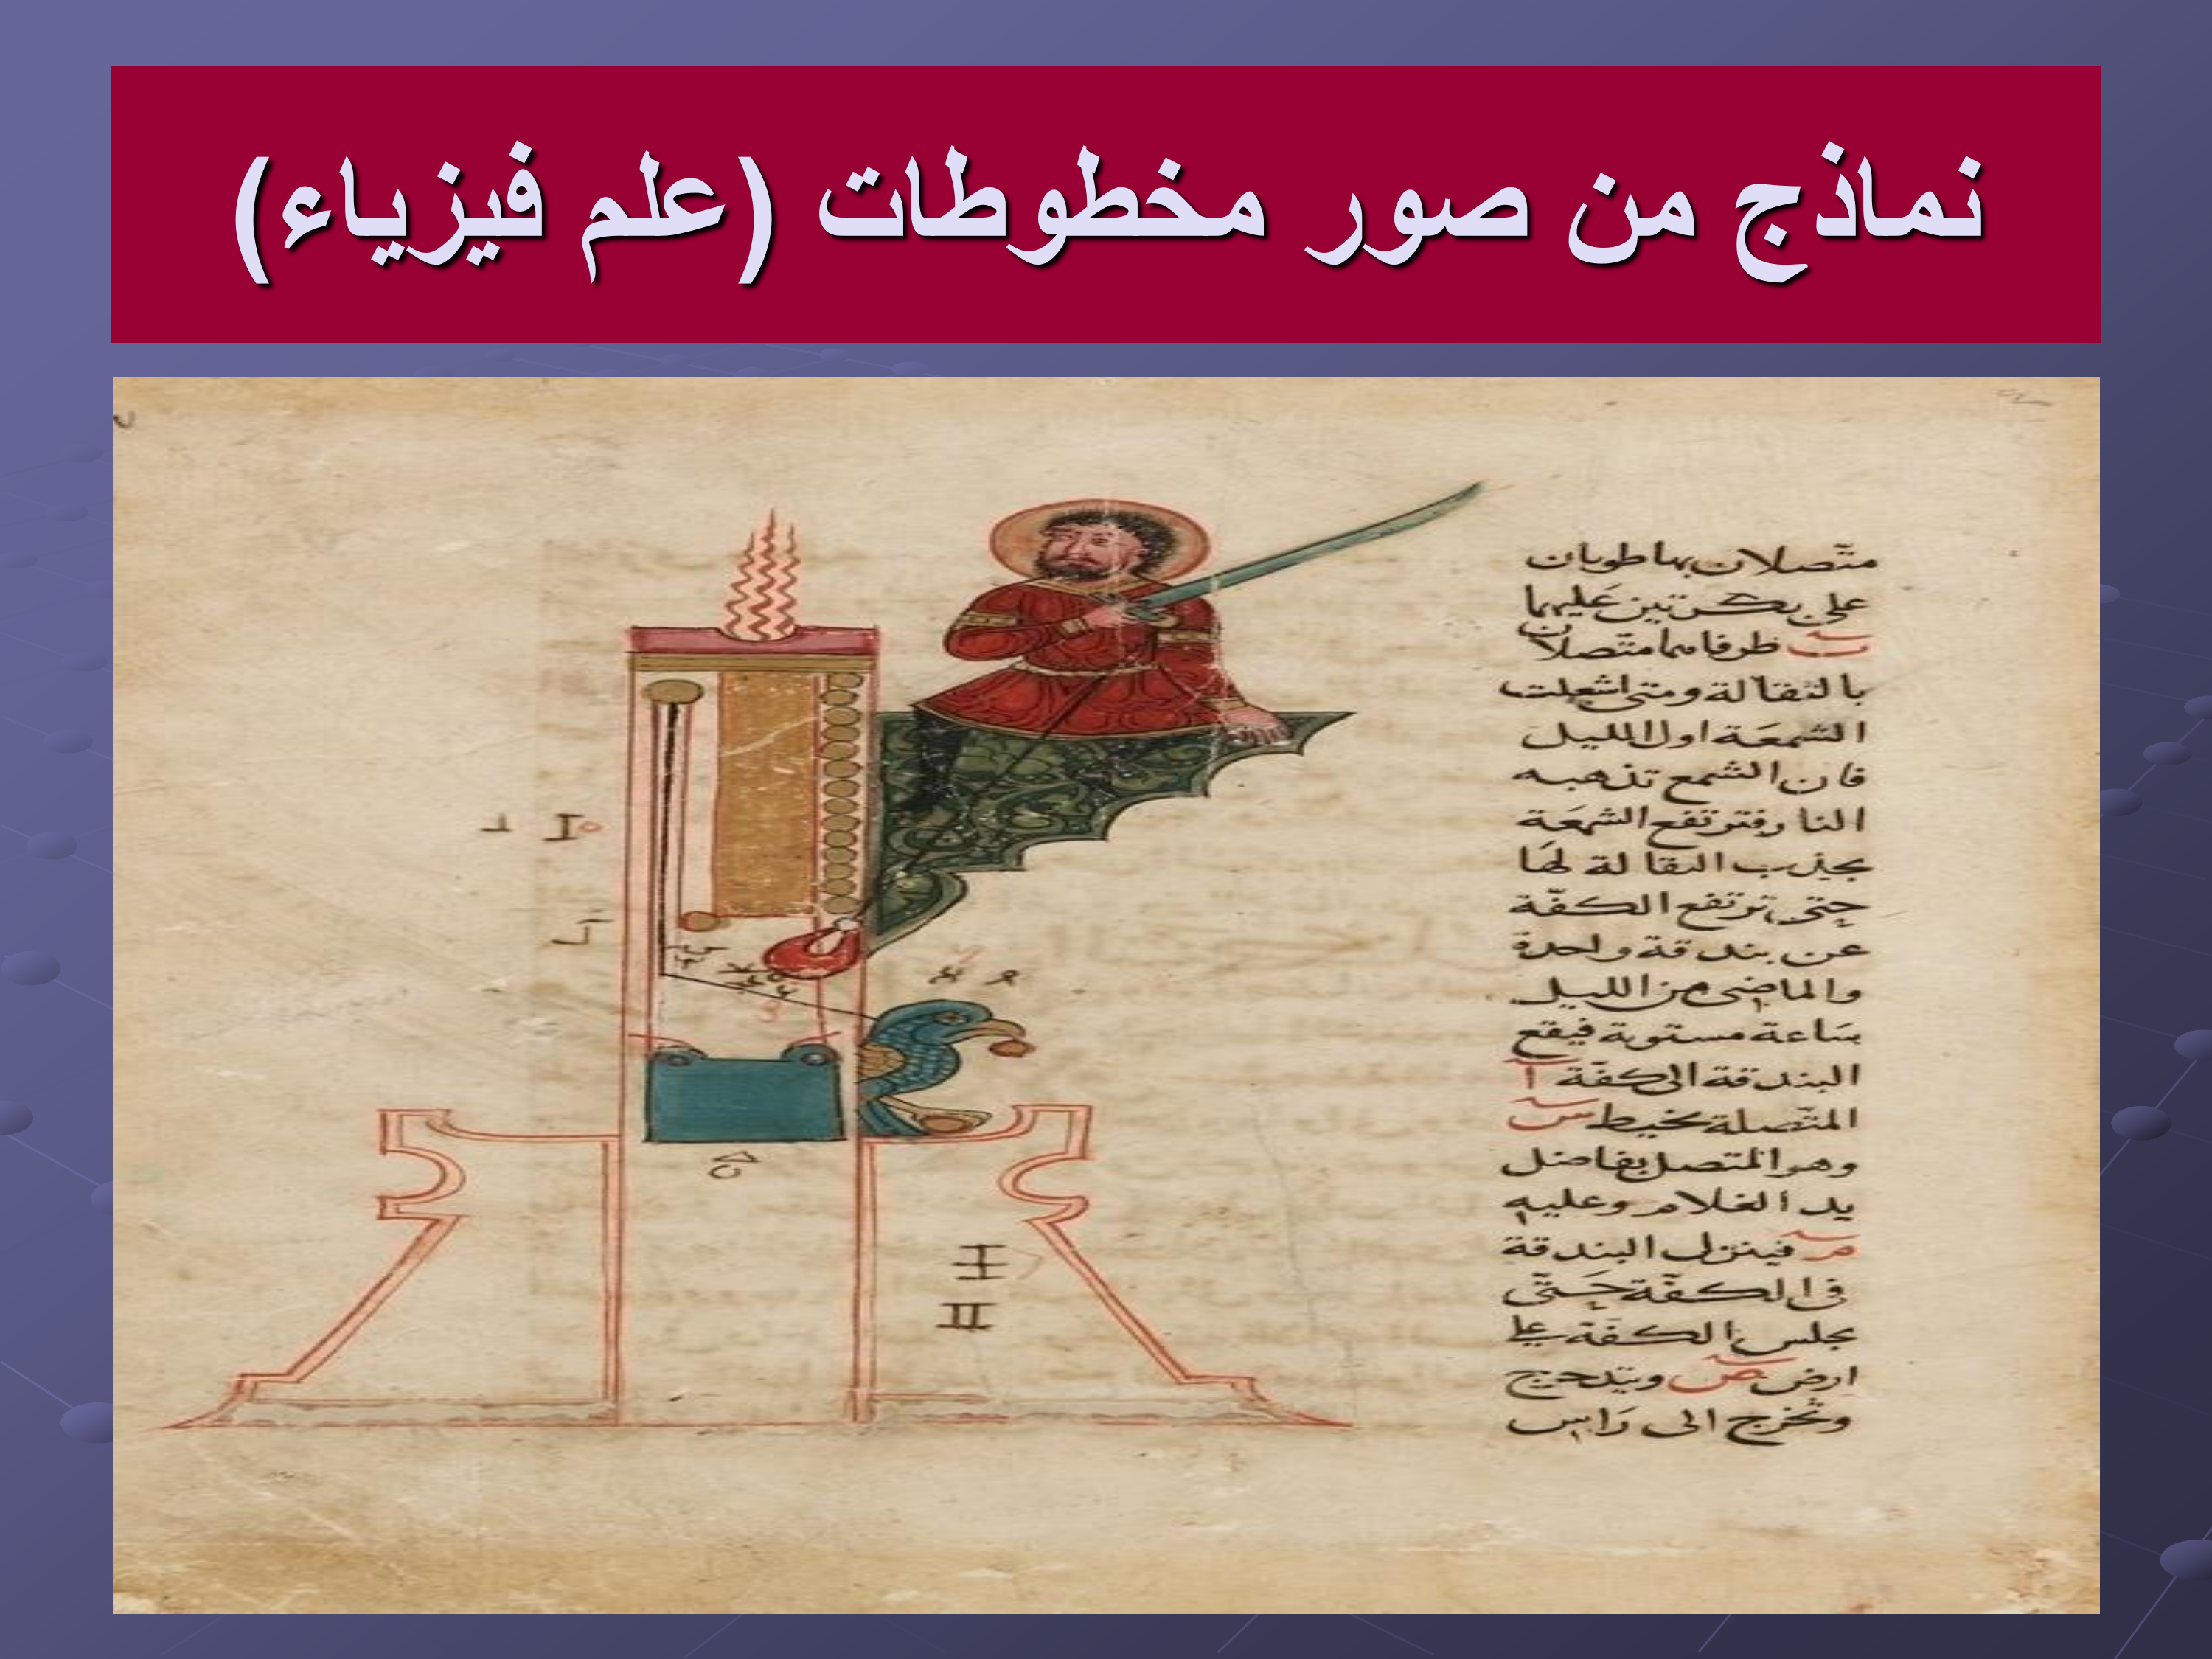 نماذج من صور مخطوطات (علم فيزياء)
متّصلان بهما طويان
على بكرتين عَليهما
ب طرفاهما متّصلان
بالثقالة ومتى اشعلت
الشمعَة اول الليل
فان الشمع تذهبه
النار فترتفع الشمعَة
بجذب الثقالة لهَا
حتى ترتفع الكفّة
عن بندقة واحدة
والماضى من الليل
سَاعة مستوية فيقع
البندقة الى كفّة آ
المتّصلة بخيط س
وهو المتصل بفاضل
يد الغلام وعليه
م فينزل البندقة
فى الكفّة حَتّى
يجلس الكفة على
ارض ص ويتدحرج
وتخرج الى رَاس